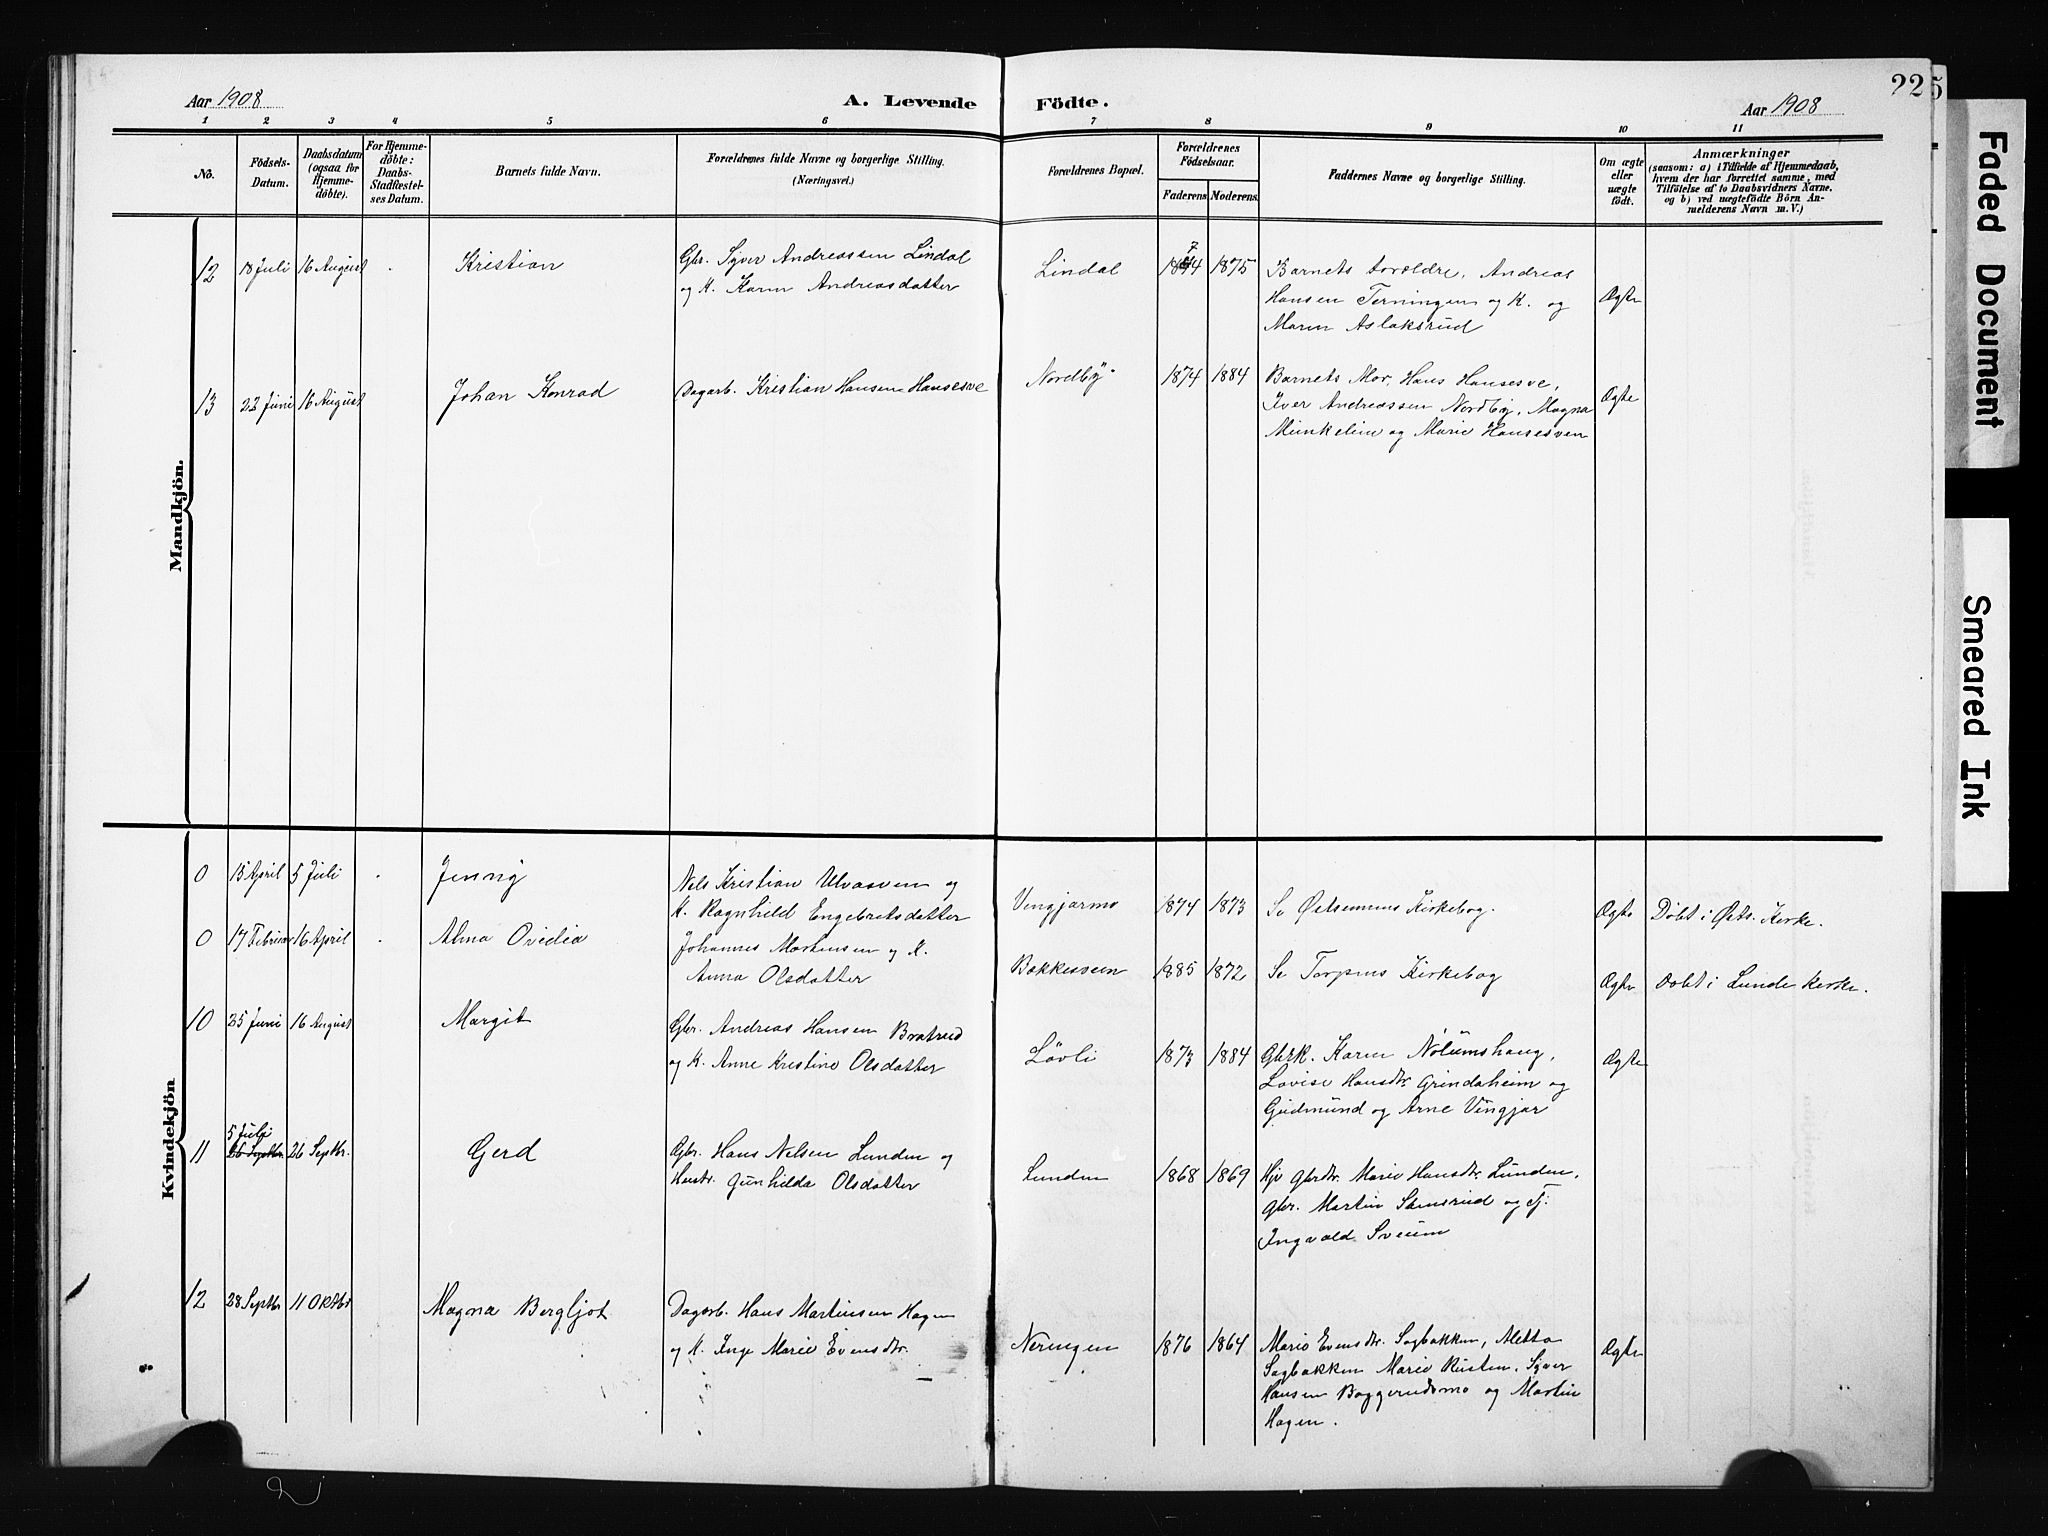 Aar 1908
A. Levende
Födte.
Aar 1908
225
1 2 3 4 5 6 7 8 9 10 11
No.
Födsels-
Datum.
Daabsdatum
(ogsaa for
Hjemme-
döbte).
For Hjemme-
döbte:
Daabs-
Stadfæstel-
ses Datum.
Barnets fulde Navn.
Forældrenes fulde Navne og borgerlige Stilling.
(Næringsvei.)
Forældrenes Bopæl.
Forældrenes
Födselsaar.
Faderens
Moderens.
Faddernes Navne og borgerlige Stilling.
Om ægte
eller
uægte
födt.
Anmærkninger
(saasom: a) i Tilfælde af Hjemmedaab,
hvem der har forrettet samme, med
Tilföielse af to Daabsvidners Navne.
og b) ved uægtefödte Börn An-
melderens Navn m. V.)
Mandkjön.
12 18 Juli 16 August - Kristian
Gbr. Syver Andreassen Lindal
og K. Karen Andreasdatter
Lindal
7
1874 1875
Barnets Forældre, Andreas
Hansen Terningen og K. og
Maren Aslaksrud
Ægte
13 22 Juni 16 August Johan Konrad
Dagarb. Kristian Hansen Hansesve
Nordby
1874 1884
Barnets Mor, Hans Hansesve,
Iver Andreassen Nordby, Magna
Munkelien og Marie Hansesveen
Ægte
Kvindekjön
0 15 April 5 Juli - Jenny
Nels Kristian Ulvasveen og
K. Ragnhild Engebretsdatter
Vingjarmo
1874 1873
Se Østsinnens Kirkebog.
Ægte
Døbt i Østs. Kirke.
0 17 Februar 16 April - Alma Ovidia
Johannes Martinsen og K.
Anna Olsdatter
Bakkesveen
1885 1872
Se Torpens Kirkebog
Ægte
Døbt i Lunde Kirke.
10 25 Juni 16 August Margit
Gbr. Andreas Hansen Bratrud
og K. Anne Kristine Olsdatter
Løvli
1873 1884
Gbrk. Karen Nølumshaug,
Lovise Hansdtr. Grindaheim og
Gudmund og Arne Vingjar
Ægte
5 Juli
11 26 Septbr. 26 Septbr. Gerd
Gbr. Hans Nelsen Lunden og
Hustr. Gunhilda Olsdatter
Lunden
1868 1869
Hjv Gbrdtr. Marie Hansdtr. Lunden,
Gbr. Martin Stensrud og Tj.
Ingvald Sveum
12 28 Septbr 11 Oktbr Magna Bergljot
Dagarb. Hans Martinsen Hagen
og K. Inge Marie Evensdtr.
Neringen
1876 1864
Marie Evensdtr. Sagbakken, Aletta
Sagbakken Marie Rusten, Syver
Hansen Baggerudsmo og Martin
Hagen.
Ægte
Faded Document
Smeared Ink